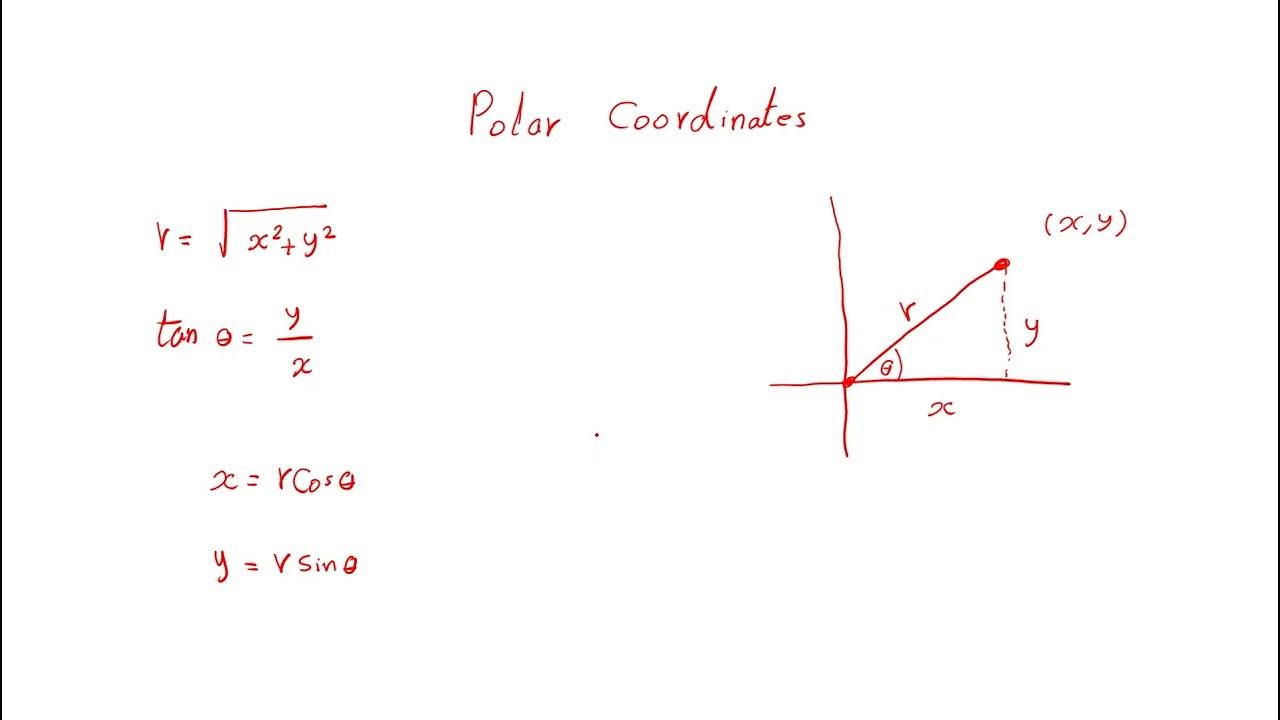 Polar Coordinates
r = √x²+y²
tan θ = y/x
x = r Cos θ
y = r sin θ
(x, y)
r
y
θ
x